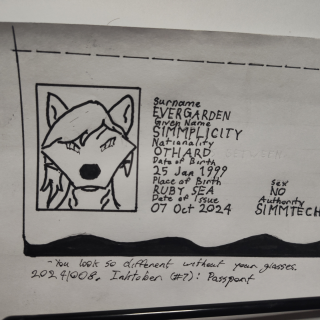 Surname
EVERGARDEN
Given Name
SIMMPLICITY
Nationality
OTHARD
Date of Birth
25 Jan 1999
Place of Birth
RUBY SEA
Date of Issue
07 Oct 2024
Sex
NO
Authority
SIMMTECH
-You look so different without your glasses.
20241008. Inktober (#7): Passport